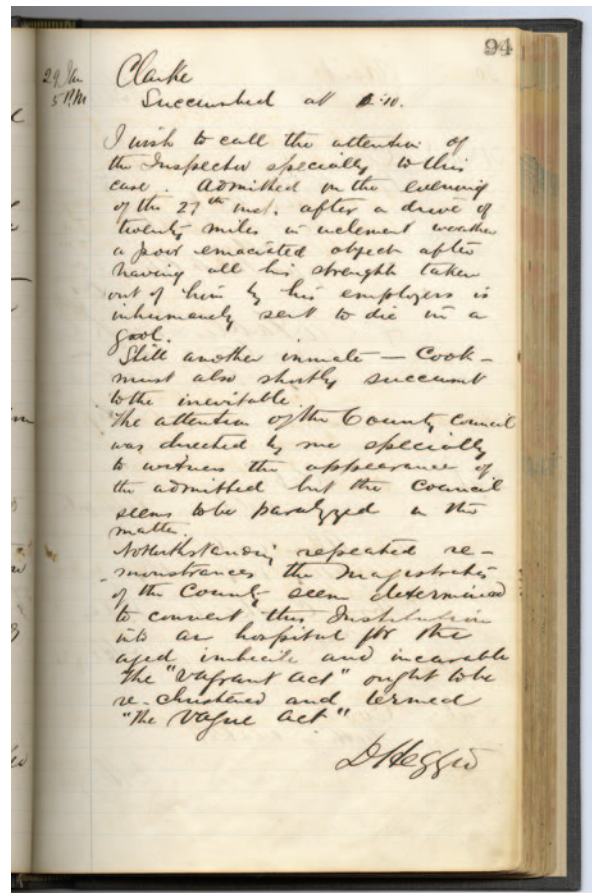 94
29 Jan
5 P.M
Clarke
Succumbed at 2:10.
I wish to call the attention of
the Inspector specially to this
case. Admitted on the evening
of the 27th inst. after a drive of
twenty miles in inclement weather
a poor emaciated object after
having all his strength taken
out of him by his employers is
inhumanely sent to die in a
gaol.
Still another inmate — Cook —
must also shortly succumb
to the inevitable.
The attention of the County Council
was directed by me specially
to witness the appearance of
the admitted but the Council
seems to be paralyzed in the
matter.
Notwithstanding repeated re-
-monstrances the Magistrates
of the County seem determined
to convert this Institution
into an hospital for the
aged imbecile and incurable
The "Vagrant Act" ought to be
re-christened and termed
"The Vague Act"
D Heggie